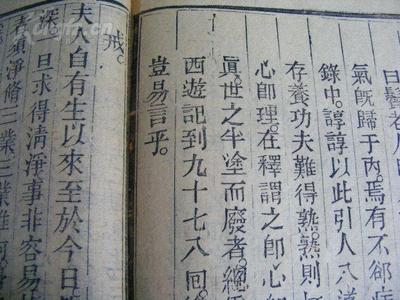 氣既歸于內。焉有不郤
錄中。諄諄以此引人入道
存養功夫難得熟。熟則上
心卽理。在釋謂之卽心
眞。世之半塗而廢者。總
西遊記到九十七八回。
豈易言乎。
戒。
夫人自有生以來至於今日
深 且求得清淨事非容易
須淨脩三業三業惟